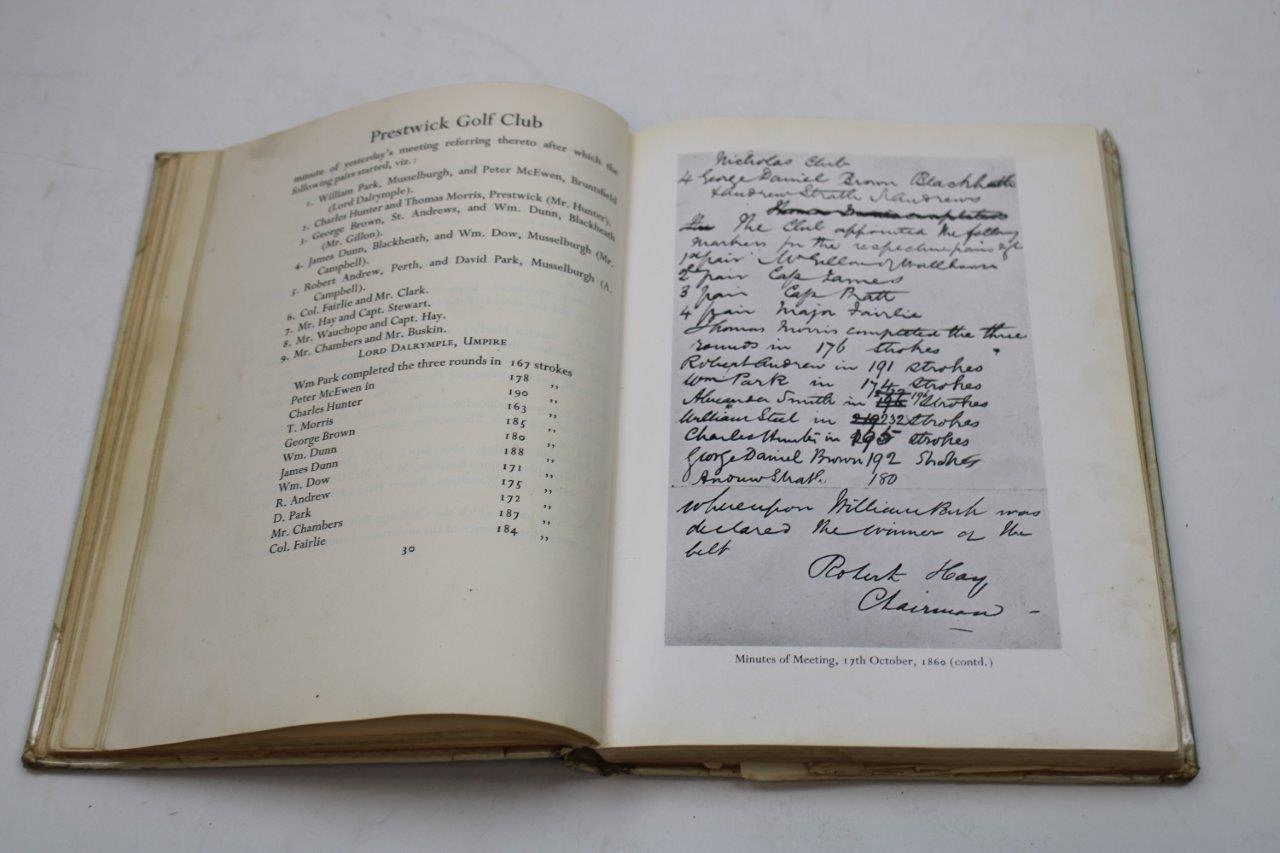 Prestwick Golf Club
minute of yesterday's meeting referring thereto after which the
following pairs started, viz.:
1. William Park, Musselburgh, and Peter McEwen, Bruntsfield
(Lord Dalrymple).
2. Charles Hunter and Thomas Morris, Prestwick (Mr. Hunter).
3. George Brown, St. Andrews, and Wm. Dunn, Blackheath
(Mr. Gillon).
4. James Dunn, Blackheath, and Wm. Dow, Musselburgh (Mr.
Campbell).
5. Robert Andrew, Perth, and David Park, Musselburgh (A.
Campbell).
6. Col. Fairlie and Mr. Clark.
7. Mr. Hay and Capt. Stewart.
8. Mr. Wauchope and Capt. Hay.
9. Mr. Chambers and Mr. Buskin.
LORD DALRYMPLE, UMPIRE
Wm Park completed the three rounds in 167 strokes
Peter McEwen in 178 ,,
Charles Hunter 190 ,,
T. Morris 163 ,,
George Brown 185 ,,
Wm. Dunn 180 ,,
James Dunn 188 ,,
Wm. Dow 171 ,,
R. Andrew 175 ,,
D. Park 172 ,,
Mr. Chambers 187 ,,
Col. Fairlie 184 ,,
30
Nicholas Club
4 George Daniel Brown Blackheath
& Andrew Strath St Andrews
The Club appointed the following
markers for the respective pairs
1st pair Mr Gillon of Wallhouse
2 pair Capt James
3 pair Capt Pratt
4 pair Major Fairlie
Thomas Morris completed the three
rounds in 176 strokes
Robert Andrew in 191 strokes
Wm Park in 174 strokes
Alexander Smith in strokes
William Steel in 232 strokes
Charles Hunter in 195 strokes
George Daniel Brown 192 Strokes
Andrew Strath. 180
whereupon William Park was
declared the winner of the
belt
Robert Hay
Chairman
Minutes of Meeting, 17th October, 1860 (contd.)